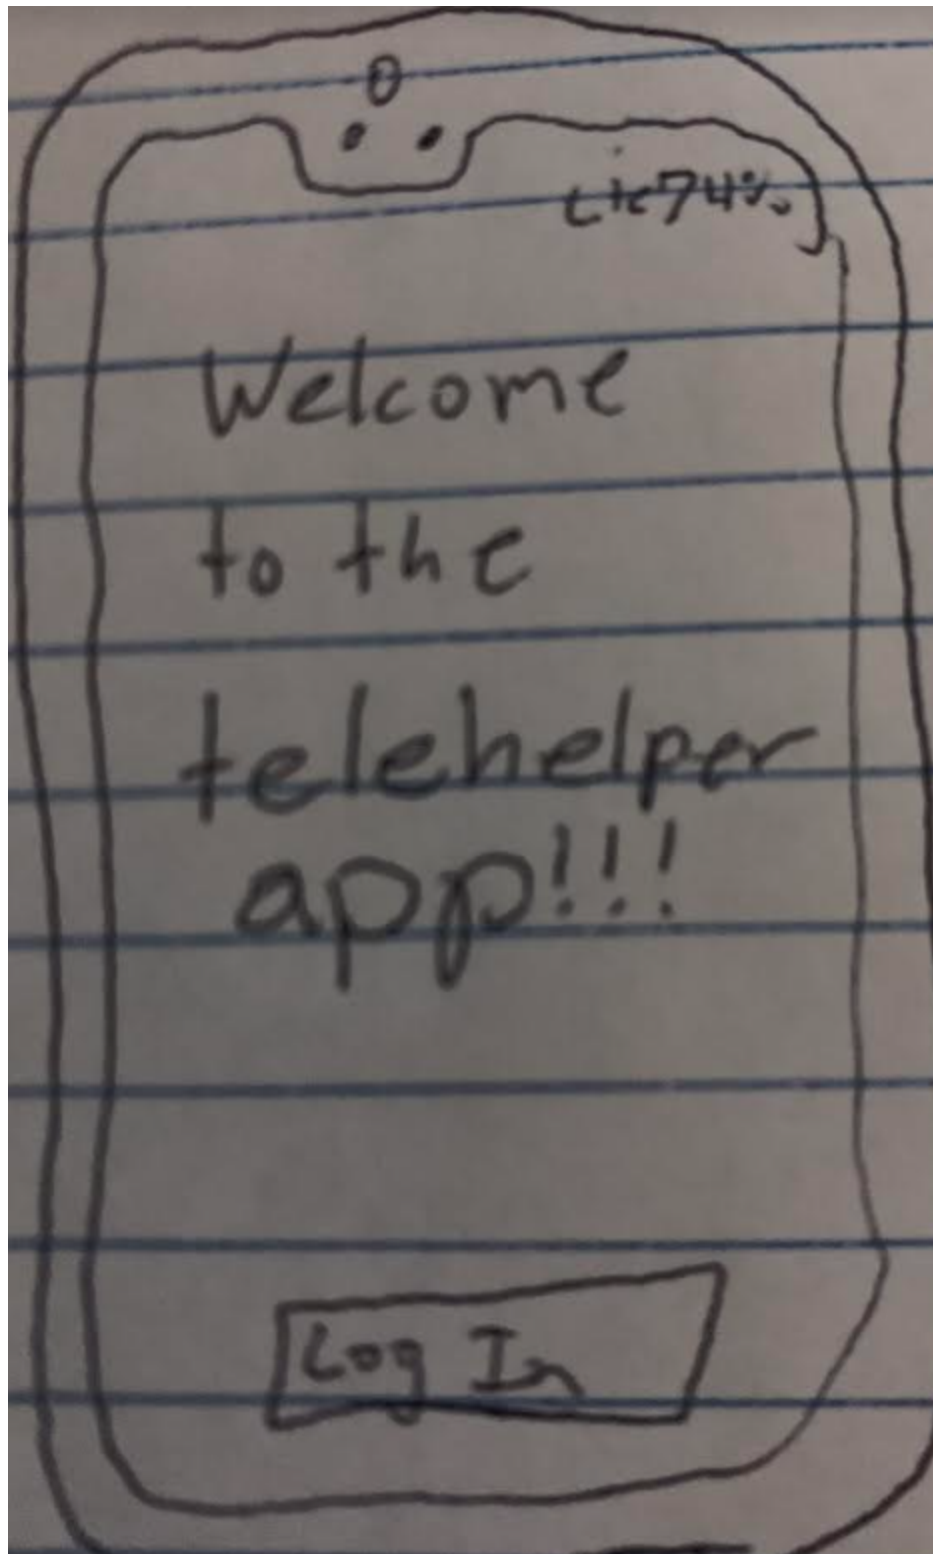 74%
Welcome
to the
telehelper
app!!!
Log In